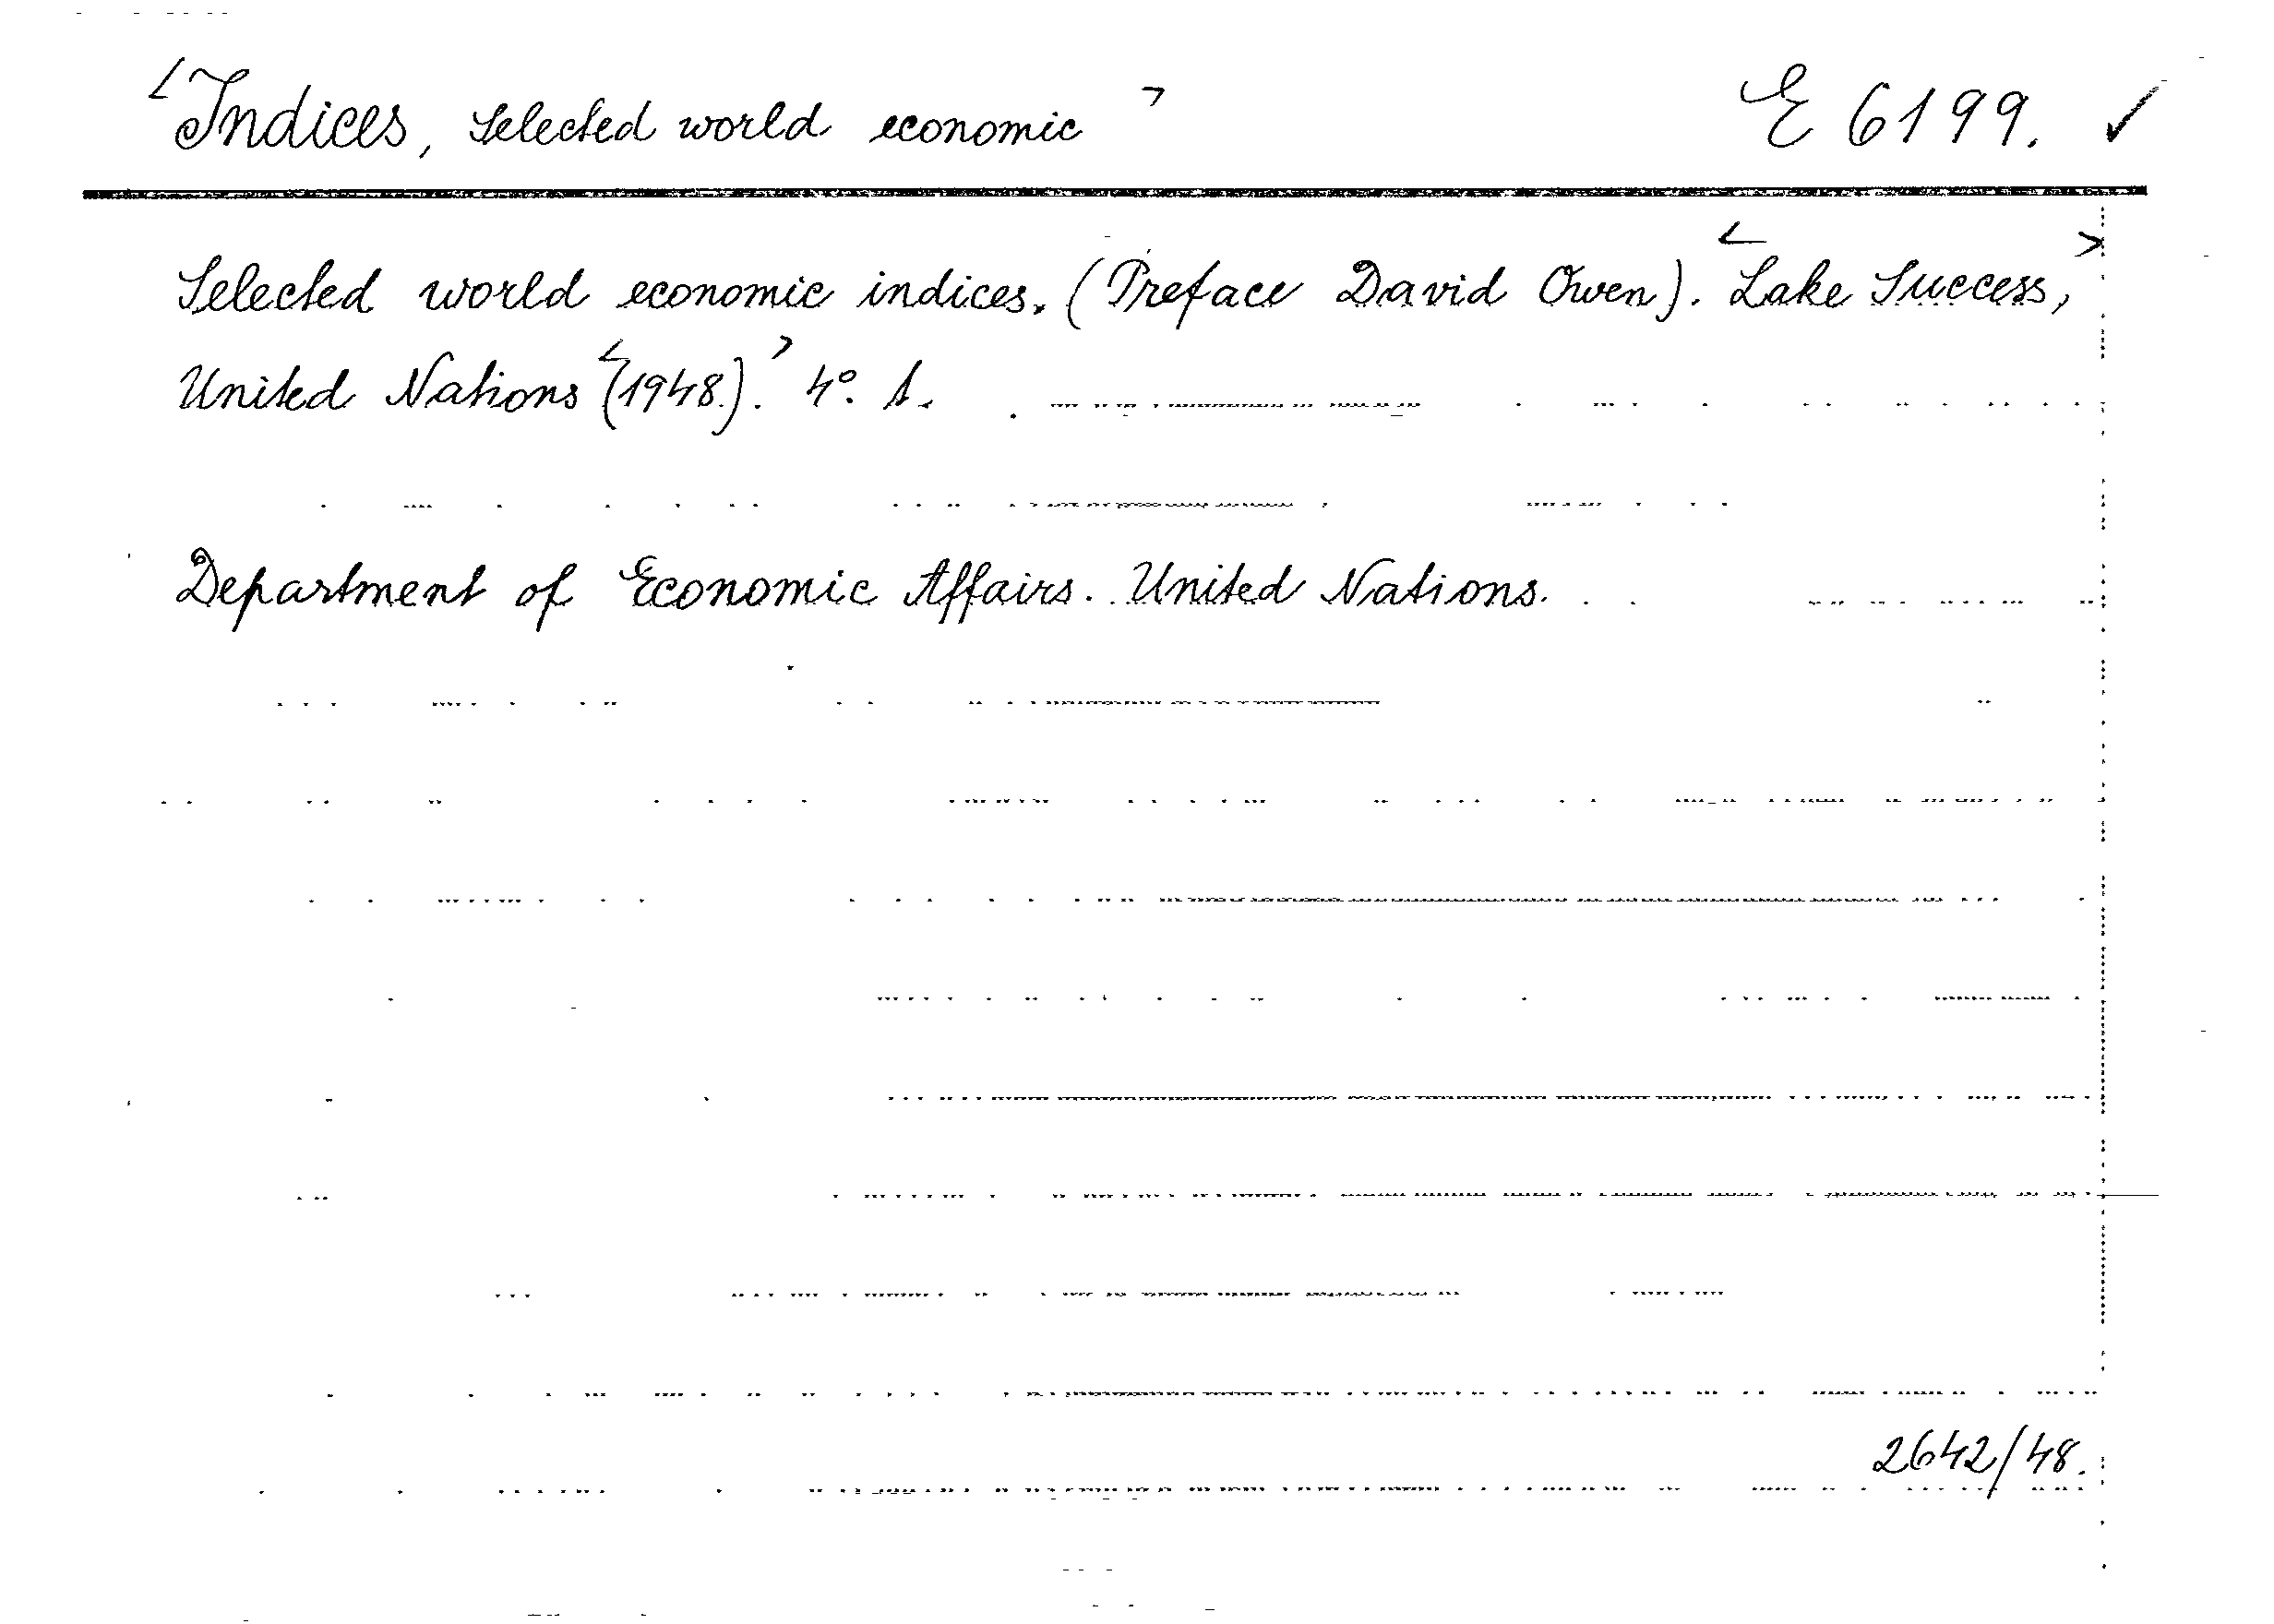 <Indices, selected world economic> E 6199. ✓
Selected world economic indices. (Preface David Owen). <Lake Success,>
United Nations <(1948.).> 4°. s.
Department of Economic Affairs. United Nations.
2642/48.